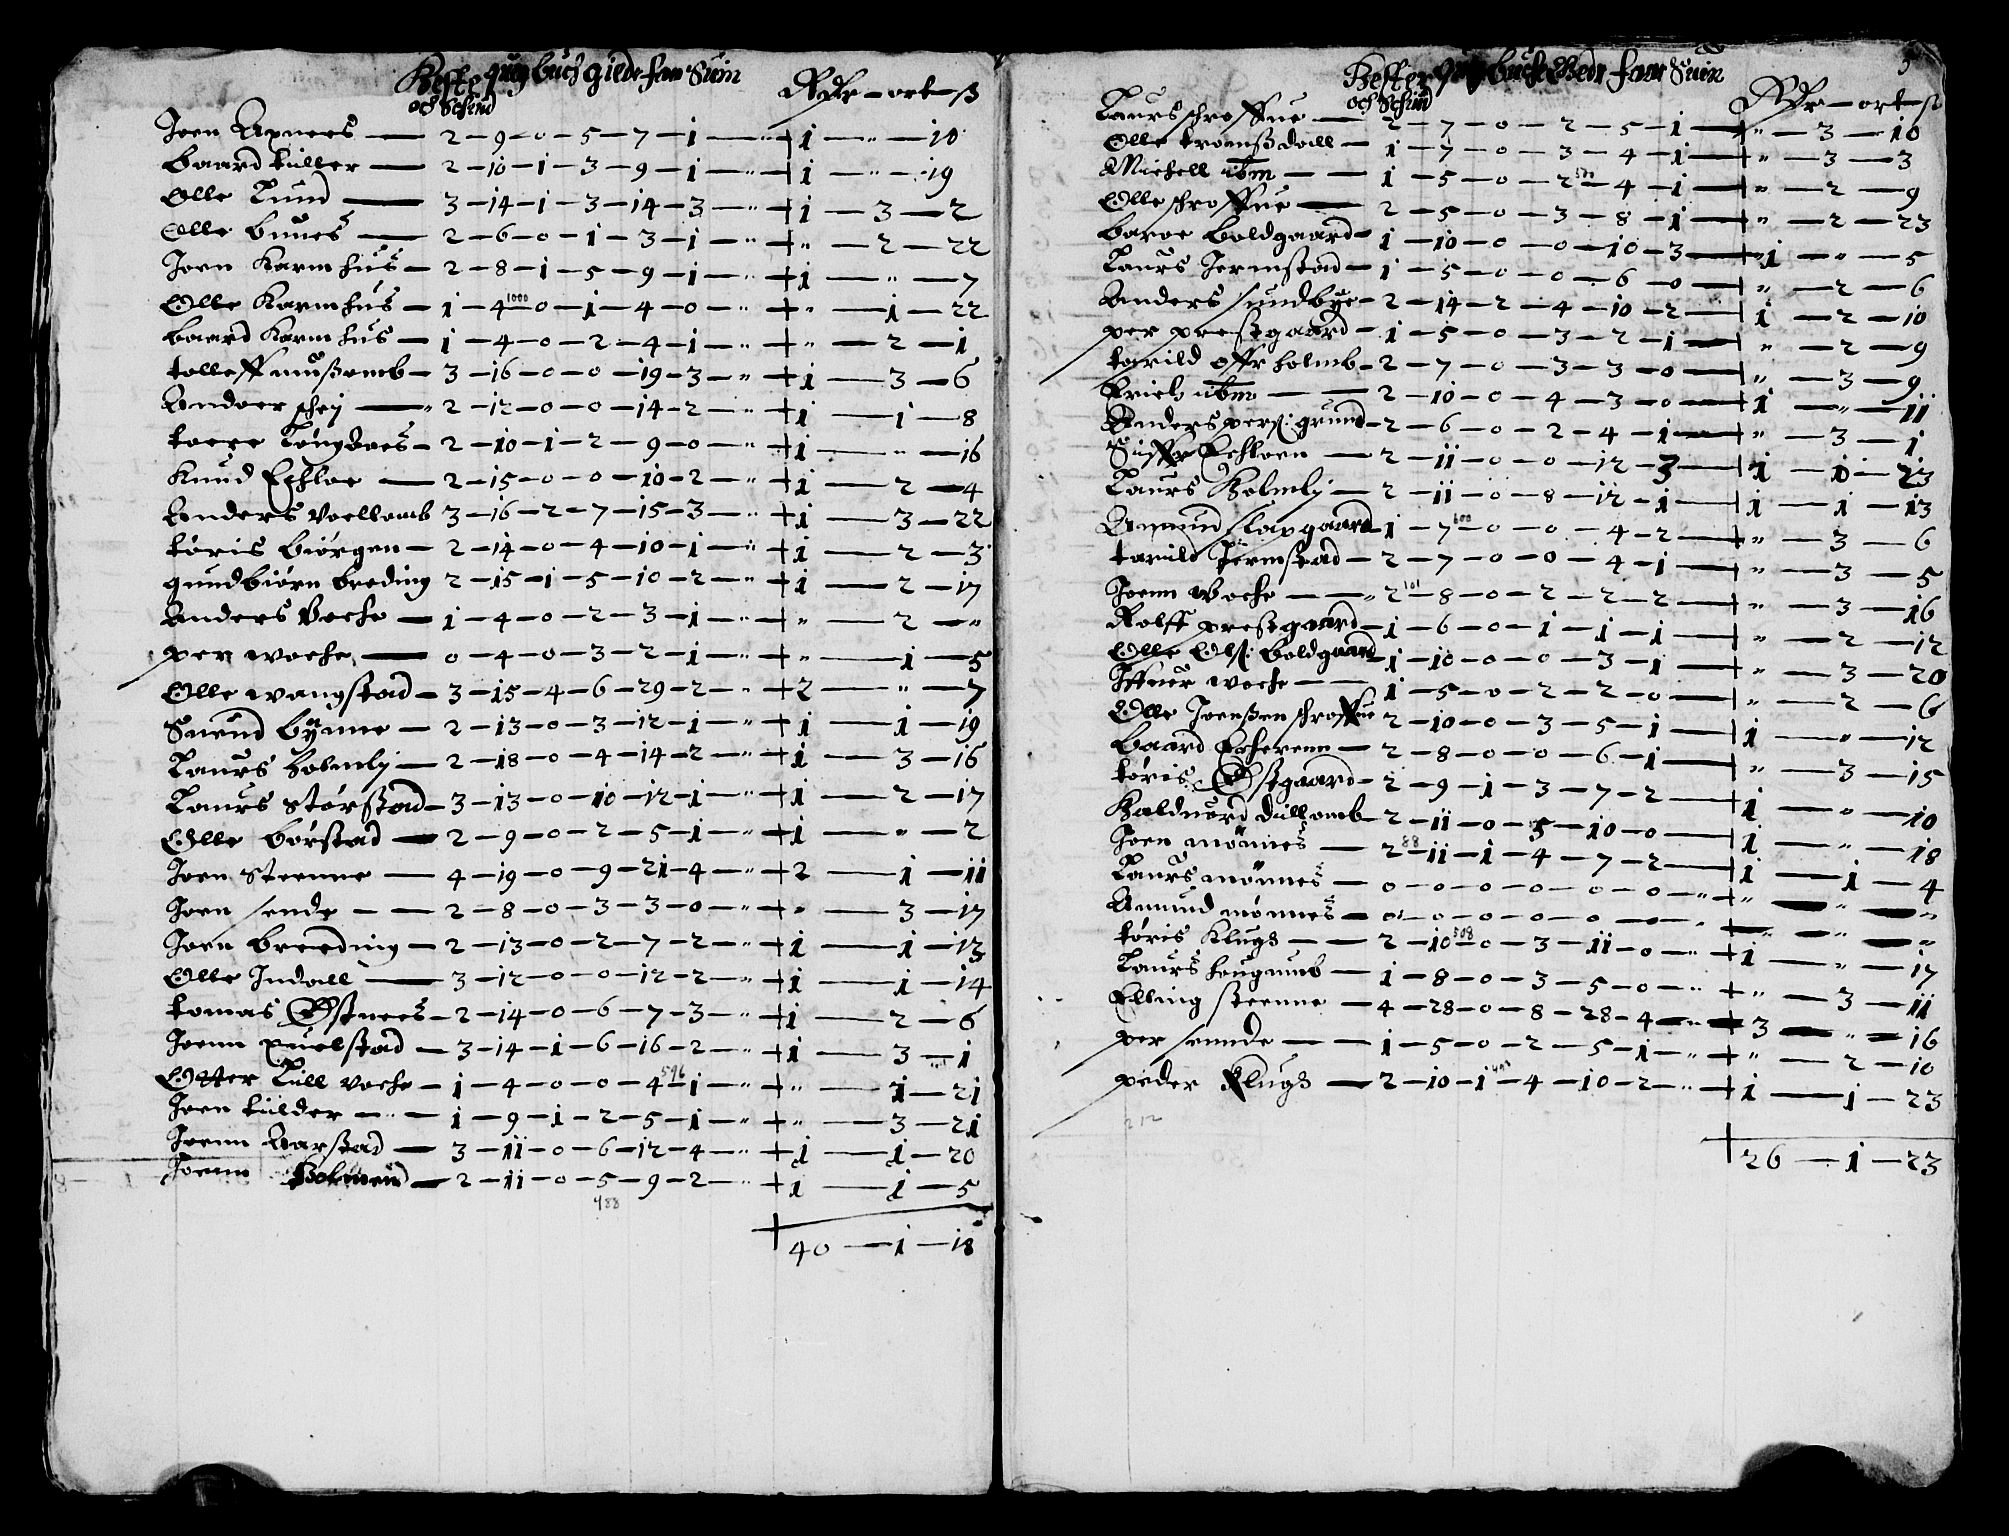 Hester quig buch gilde faar Suin Rdr — ort — ß
och Schend
Joen Apnees — 2 – 9 – 0 – 5 – 7 – 1 – „ + 1 — „ — 10
baard tuller — 2 – 10 – 1 – 3 – 9 – 1 – „ + 1 — „ — 19
Olle Lund — 3 – 14 – 1 – 3 – 14 – 3 – „ + 1 — 3 — 2
Olle buues — 2 – 6 – 0 – 1 – 3 – 1 – „ + „ — 2 — 22
Joen Karmhus — 2 – 8 – 1 – 5 – 9 – 1 – „ + 1 — „ — 7
Olle Karmhus — 1 – 4 – 0 – 1 – 4 – 0 – „ + „ — 1 — 22
baard Karmhus — 1 – 4 – 0 – 2 – 4 – 1 – „ + „ — 2 — 1
tolleff mußemb — 3 – 16 – 0 – 0 – 19 – 3 – „ + 1 — 3 — 6
Andoer schej — 2 – 12 – 0 – 0 – 14 – 2 – „ + 1 — 1 — 8
toere — 2 – 10 – 1 – 2 – 9 – 0 – „ + 1 — „ — 16
Knud Echloe — 2 – 15 – 0 – 0 – 10 – 2 – „ + 1 — 2 — 4
Anders voellomb 3 – 16 – 2 – 7 – 15 – 3 – „ + 1 — 3 — 22
töris biörgen — 2 – 14 – 0 – 4 – 10 – 1 – „ + 1 — 2 — 3
gundbiörn breding 2 – 15 – 1 – 5 – 10 – 2 – „ + 1 — 2 — 17
Anders voche — 1 – 4 – 0 – 2 – 3 – 1 – „ + „ — 2 — „
per woche — 0 – 4 – 0 – 3 – 2 – 1 – „ + „ — 1 — 5
Olle wangstad — 3 – 15 – 4 – 6 – 29 – 2 – „ + 2 — „ — 7
Suend bÿnne — 2 – 13 – 0 – 3 – 12 – 1 – „ + 1 — 1 — 19
Laurs holmlj — 2 – 18 – 0 – 4 – 14 – 2 – „ + 1 — 3 — 16
Laurs Störstad — 3 – 13 – 0 – 10 – 12 – 1 – „ + 1 — 2 — 17
Olle börstad — 2 – 9 – 0 – 2 – 5 – 1 – „ + 1 — „ — 2
Joen Steenne — 4 – 19 – 0 – 9 – 21 – 4 – „ + 2 — 1 — 11
Joen sende — 2 – 8 – 0 – 3 – 3 – 0 – „ + „ — 3 — 17
Joen breeding — 2 – 13 – 0 – 2 – 7 – 2 – „ + 1 — 1 — 13
Olle Indall — 3 – 12 – 0 – 0 – 12 – 2 – „ + 1 — 1 — 14
tomas Østnees — 2 – 14 – 0 – 6 – 7 – 3 – „ + 1 — 2 — 6
Joenn puelstad — 3 – 14 – 1 – 6 – 16 – 2 – „ + 1 — 3 — 1
Otter Lull voche — 1 – 4 – 0 – 0 – 4 – 1 – „ + „ — 1 — 21
Joen tulder — 1 – 9 – 1 – 2 – 5 – 1 – „ + „ — 3 — 21
Joenn Aarstad — 3 – 11 – 0 – 6 – 12 – 4 – „ + 1 — 1 — 20
Joenn Holmen — 2 – 11 – 0 – 5 – 9 – 2 – „ + 1 — 1 — 5
488
40 — 1 — 18
5
Hester quig buch Gedr faar Suin Rdr — ort — ß
och Schind
Laurs schroffue — 2 – 7 – 0 – 2 – 5 – 1 — „ — 3 — 10
Olle tromßdall — 1 – 7 – 0 – 3 – 4 – 1 — „ — 3 — 3
Michell ibm — 1 – 5 – 0 – 2 – 4 – 1 — „ — 2 — 9
Olle schroffue — 2 – 5 – 0 – 3 – 8 – 1 — „ — 2 — 23
baroe boldgaard — 1 – 10 – 0 – 0 – 10 – 3 — 1 — „ — 5
Laurs Jermstad — 1 – 5 – 0 – 0 – 6 – 0 — „ — 2 — 6
Anders sundbye — 2 – 14 – 2 – 4 – 10 – 2 — 1 — 2 — 10
per prestgaard — 1 – 5 – 0 – 3 – 2 – 1 — „ — 2 — 9
tarild offr holmb — 2 – 7 – 0 – 3 – 3 – 0 — „ — 3 — 9
Erich ibm — 2 – 10 – 0 – 4 – 3 – 0 — 1 — „ — 11
Anders pers: grund — 2 – 6 – 0 – 2 – 4 – 1 — „ — 3 — 1
Siffr Echloen — 2 – 11 – 0 – 0 – 12 – 3 — 1 — 1 — 23
Laurs Holmlj — 2 – 11 – 0 – 8 – 12 – 1 — 1 — 1 — 13
Amund slapgaard — 1 – 7 – 0 – 0 – 4 – 2 — „ — 3 — 6
taruld Jermstad — 2 – 7 – 0 – 0 – 4 – 1 — „ — 3 — 5
Joenn woche — 2 – 8 – 0 – 2 – 2 – 2 — „ — 3 — 16
Rolff prestgaard — 1 – 6 – 0 – 1 – 1 – 1 — „ — 2 — 12
Olle Ols: boldgaard — 1 – 10 – 0 – 0 – 3 – 1 — „ — 3 — 20
Iffuer woche — 1 – 5 – 0 – 2 – 2 – 0 — „ — 2 — 6
Olle Joenßen schroffue 2 – 10 – 0 – 3 – 5 – 1 — 1 — „ — 12
baard Echerenn — 2 – 8 – 0 – 0 – 6 – 1 — „ — 3 — 15
töris Østgaard — 2 – 9 – 1 – 3 – 7 – 2 — 1 — „ — 10
Halduord dullomb — 2 – 11 – 0 – 5 – 10 – 0 — 1 — „ — 18
Joen mönnes — 2 – 11 – 1 – 4 – 7 – 2 — 1 — 1 — 4
Laurs mönnes — 0 – 0 – 0 – 0 – 0 – 0 – „ + „ — „ — „
Amund mönnes — 0 – 0 – 0 – 0 – 0 — „ + „ — „ — „
töris Klugs — 2 – 10 – 0 – 3 – 11 – 0 – „ + 1 — „ — 17
Laurs haugumb — 1 – 8 – 0 – 3 – 5 – 0 – „ + „ — 3 — 11
Elling steenne — 4 – 28 – 0 – 8 – 28 – 4 – „ + 3 — „ — 16
per sennde — 1 – 5 – 0 – 2 – 5 – 1 – „ + „ — 2 — 10
peder Klugs — 2 – 10 – 1 – 4 – 10 – 2 – „ + 1 — 1 — 23
212
26 — 1 — 23